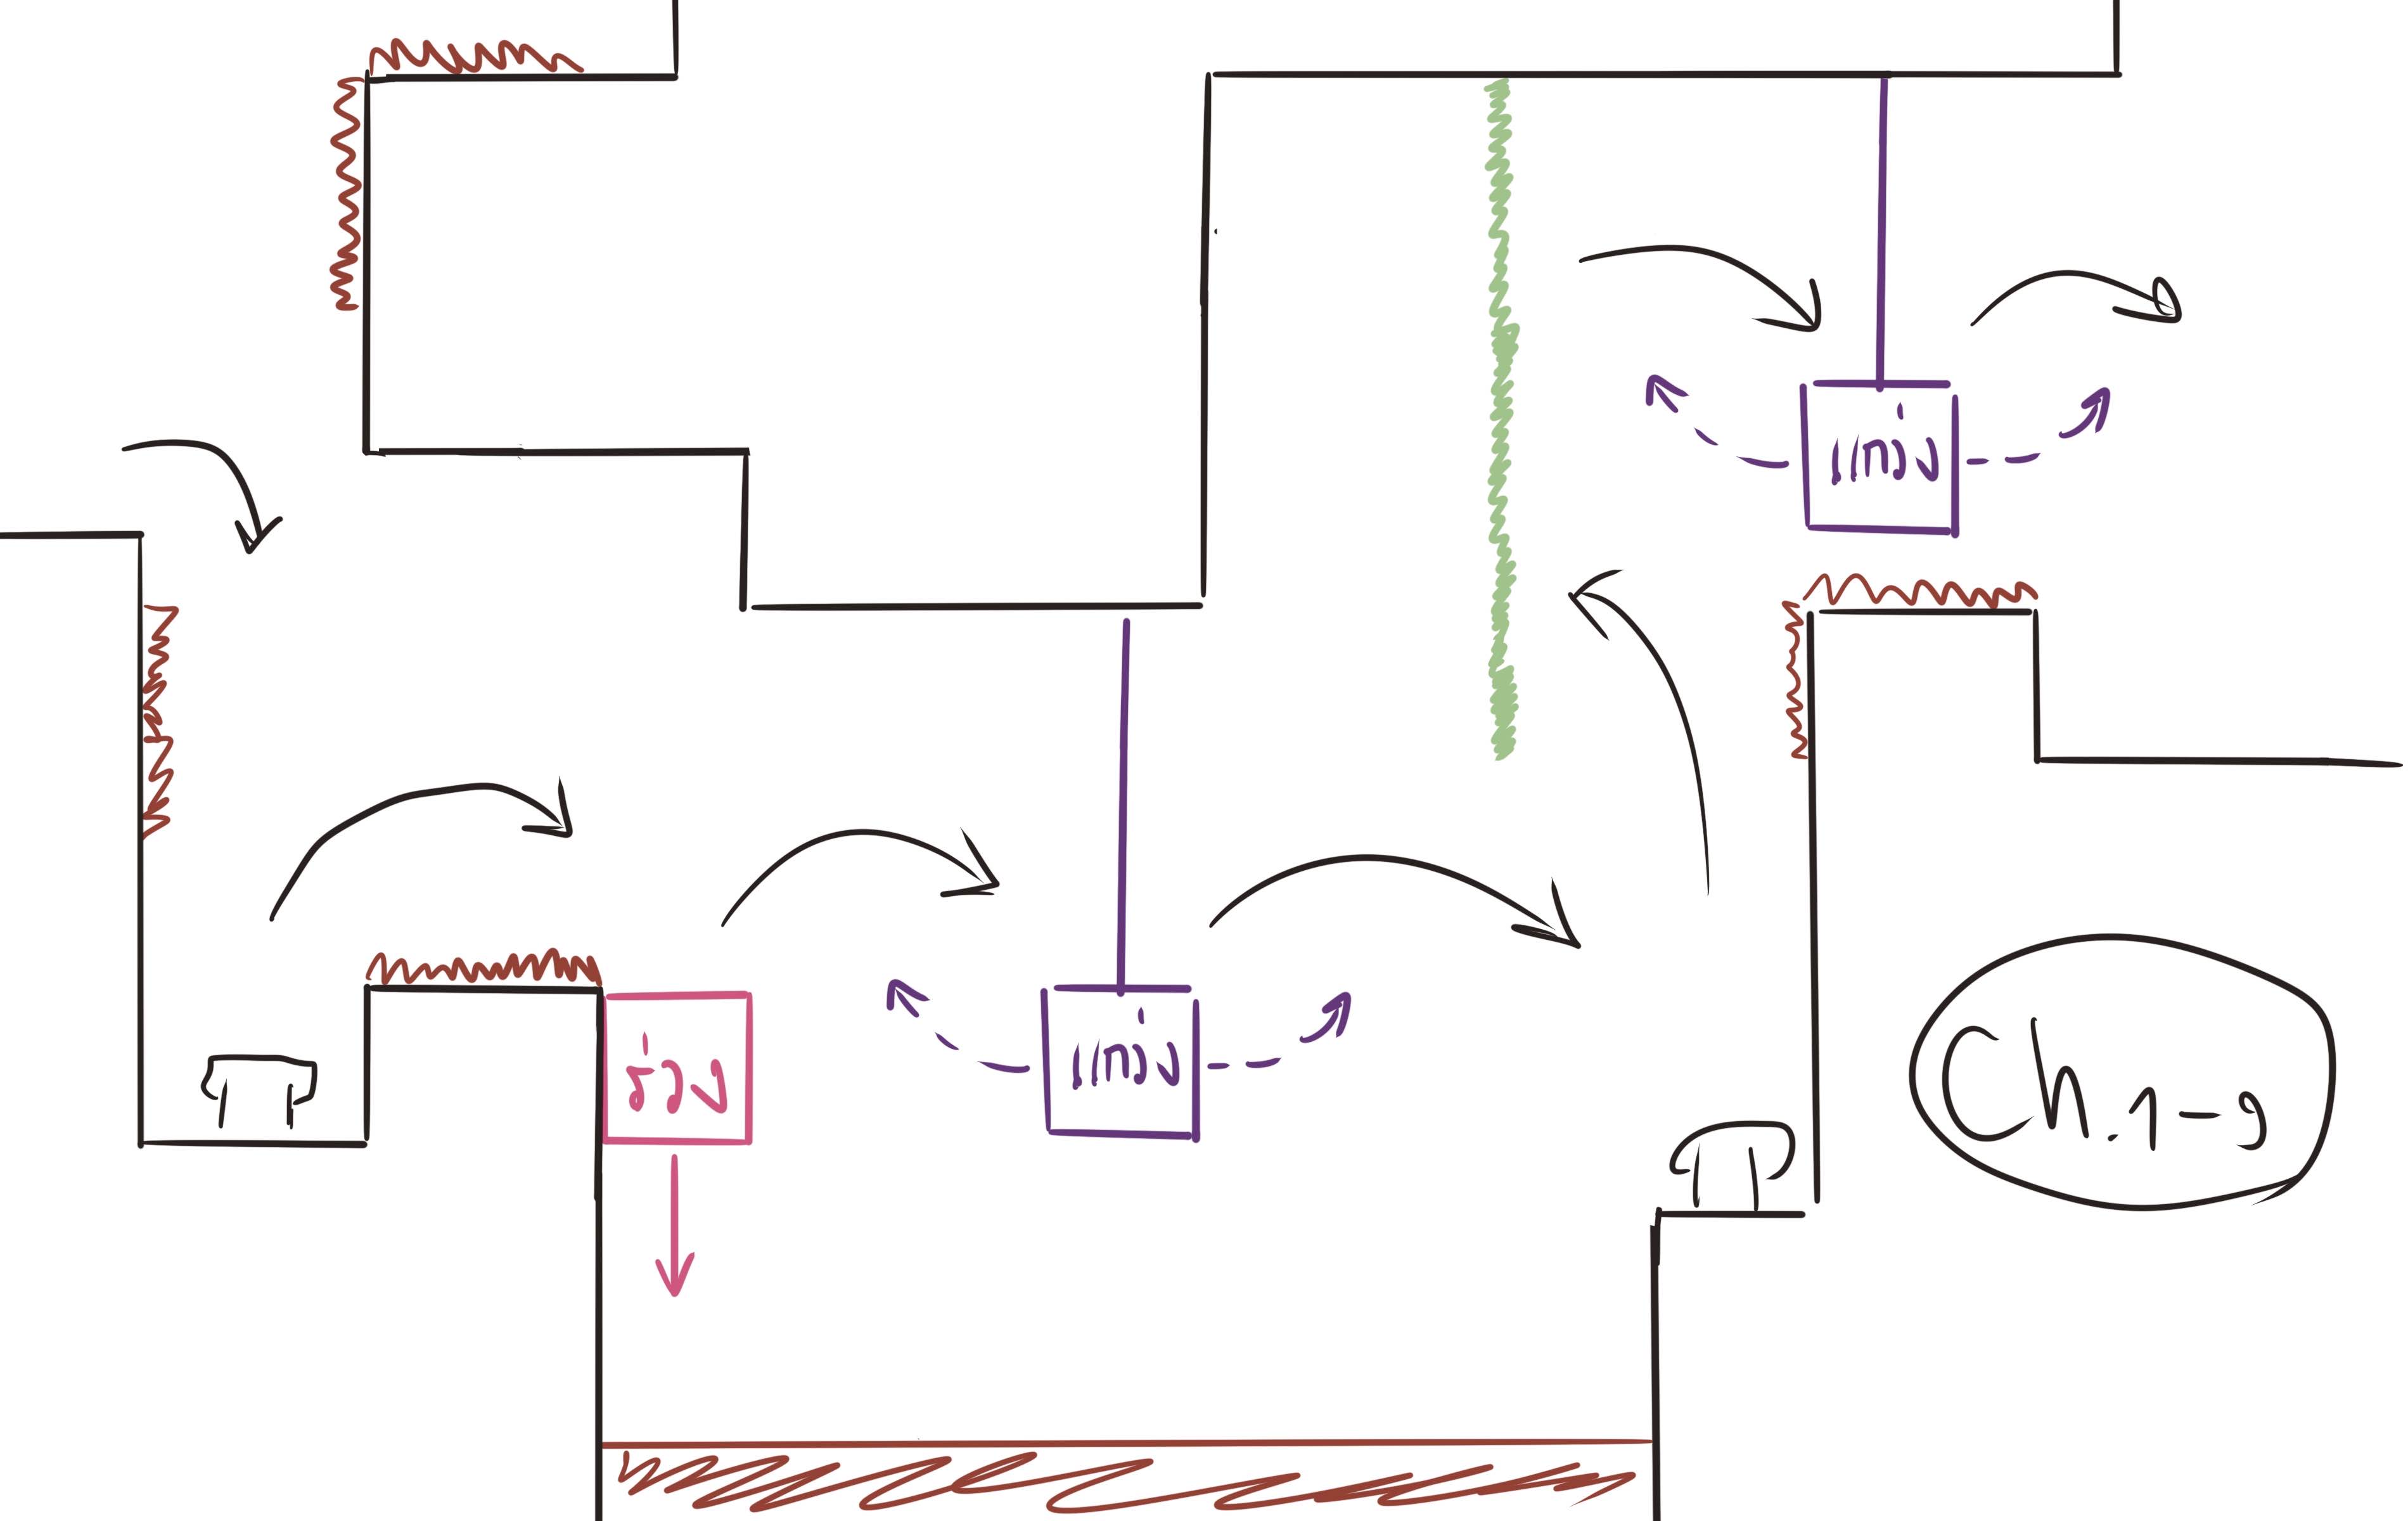 แกว่ง
ร่วง
แกว่ง
Ch.1-9